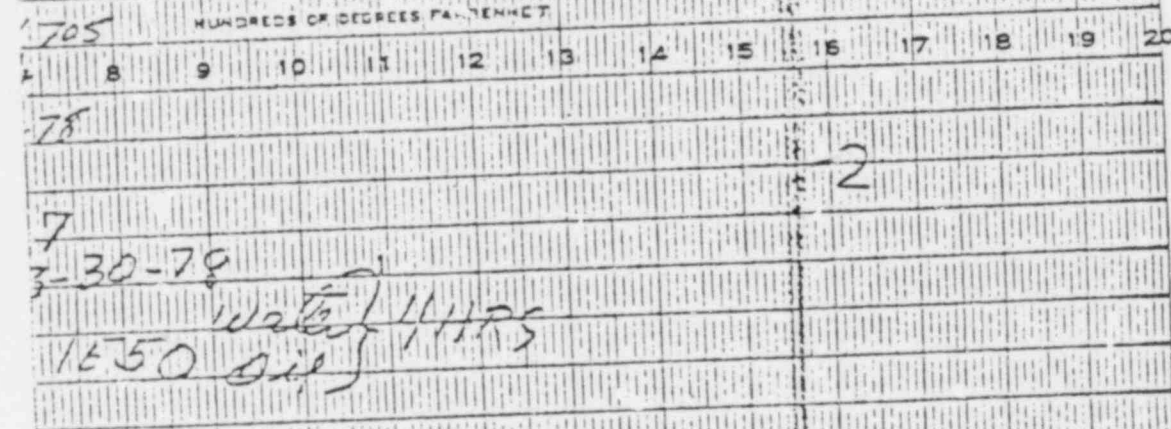 705
HUNDREDS OF DEGREES FAHRENHEIT
8 9 10 11 12 13 14 15 16 17 18 19 20
-78
2
7
3-30-78
Water
HRS
1550 Oil